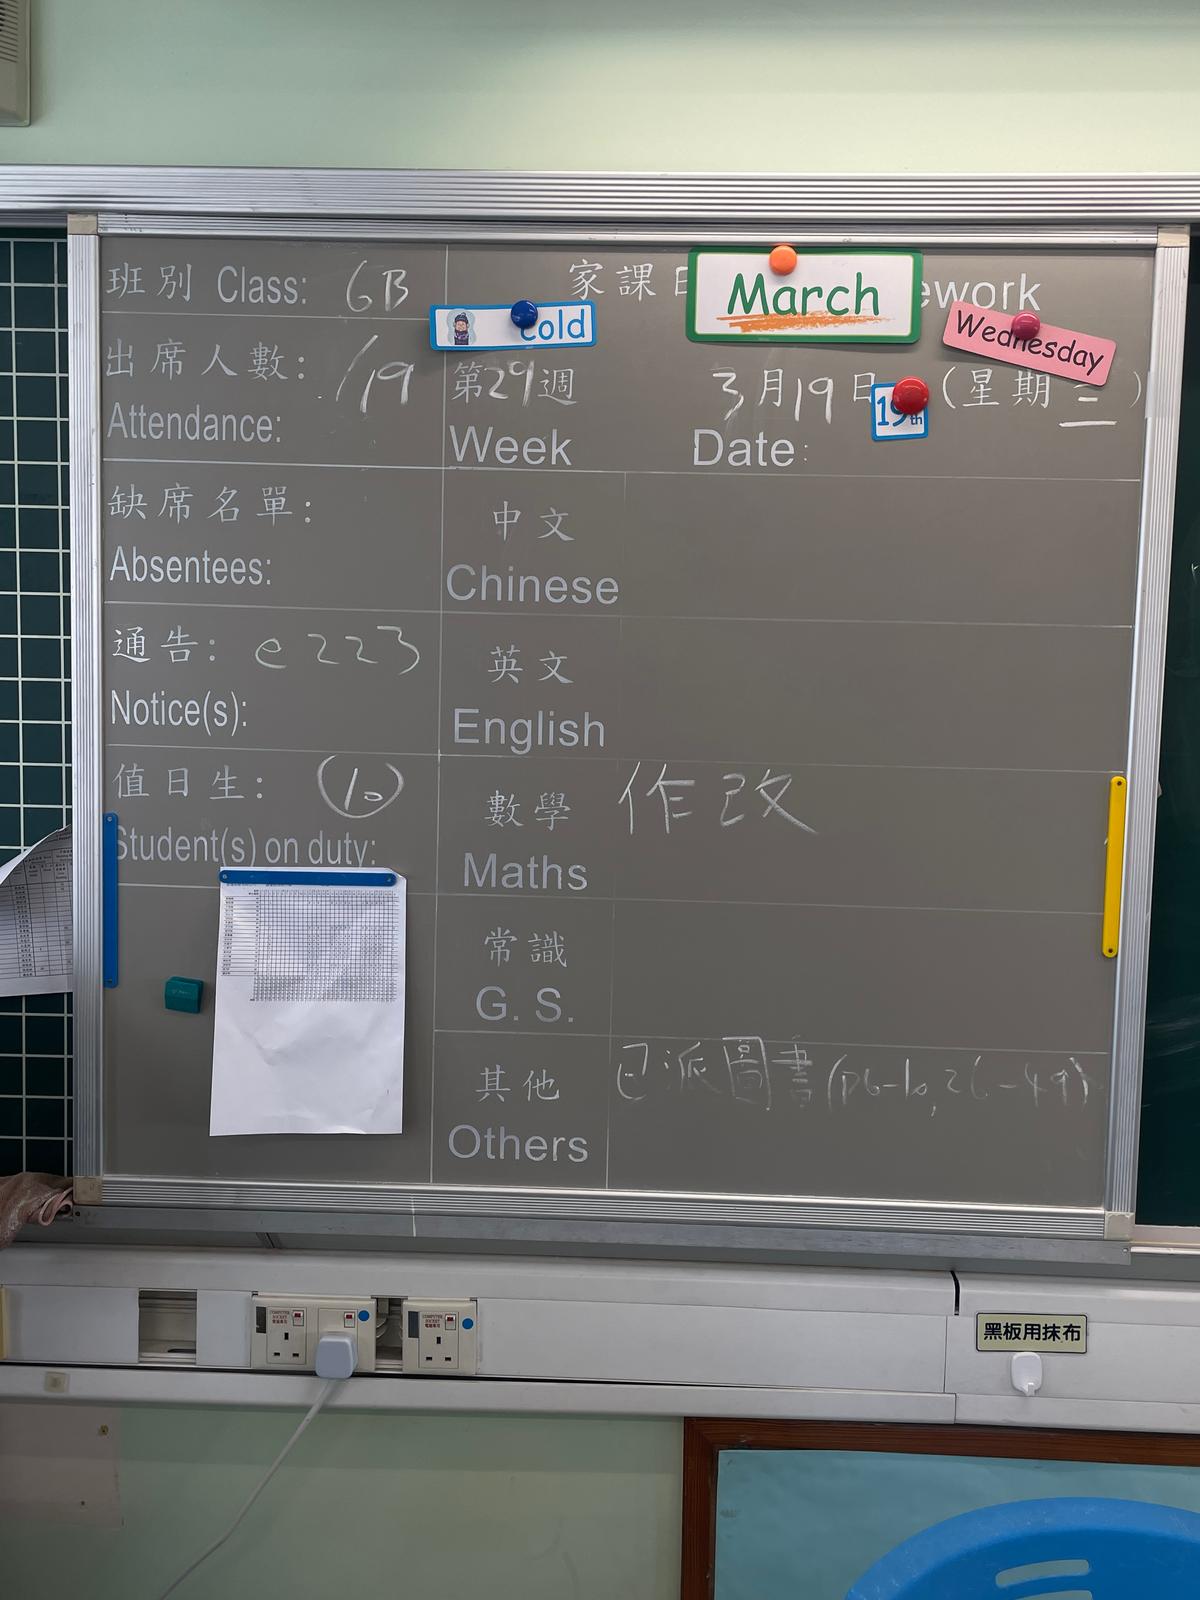 班別 Class: 6B
家課日
March
ework
cold
Wednesday
出席人數: /19
Attendance:
第29週
Week
3月19日 (星期三)
19th
Date:
缺席名單:
Absentees:
中文
Chinese
通告: e223
Notice(s):
英文
English
值日生: 10
Student(s) on duty:
數學 作改
Maths
常識
G. S.
其他 已派圖書(p6-10,26-49)
Others
COMPUTER SOCKET
COMPUTER SOCKET
黑板用抹布